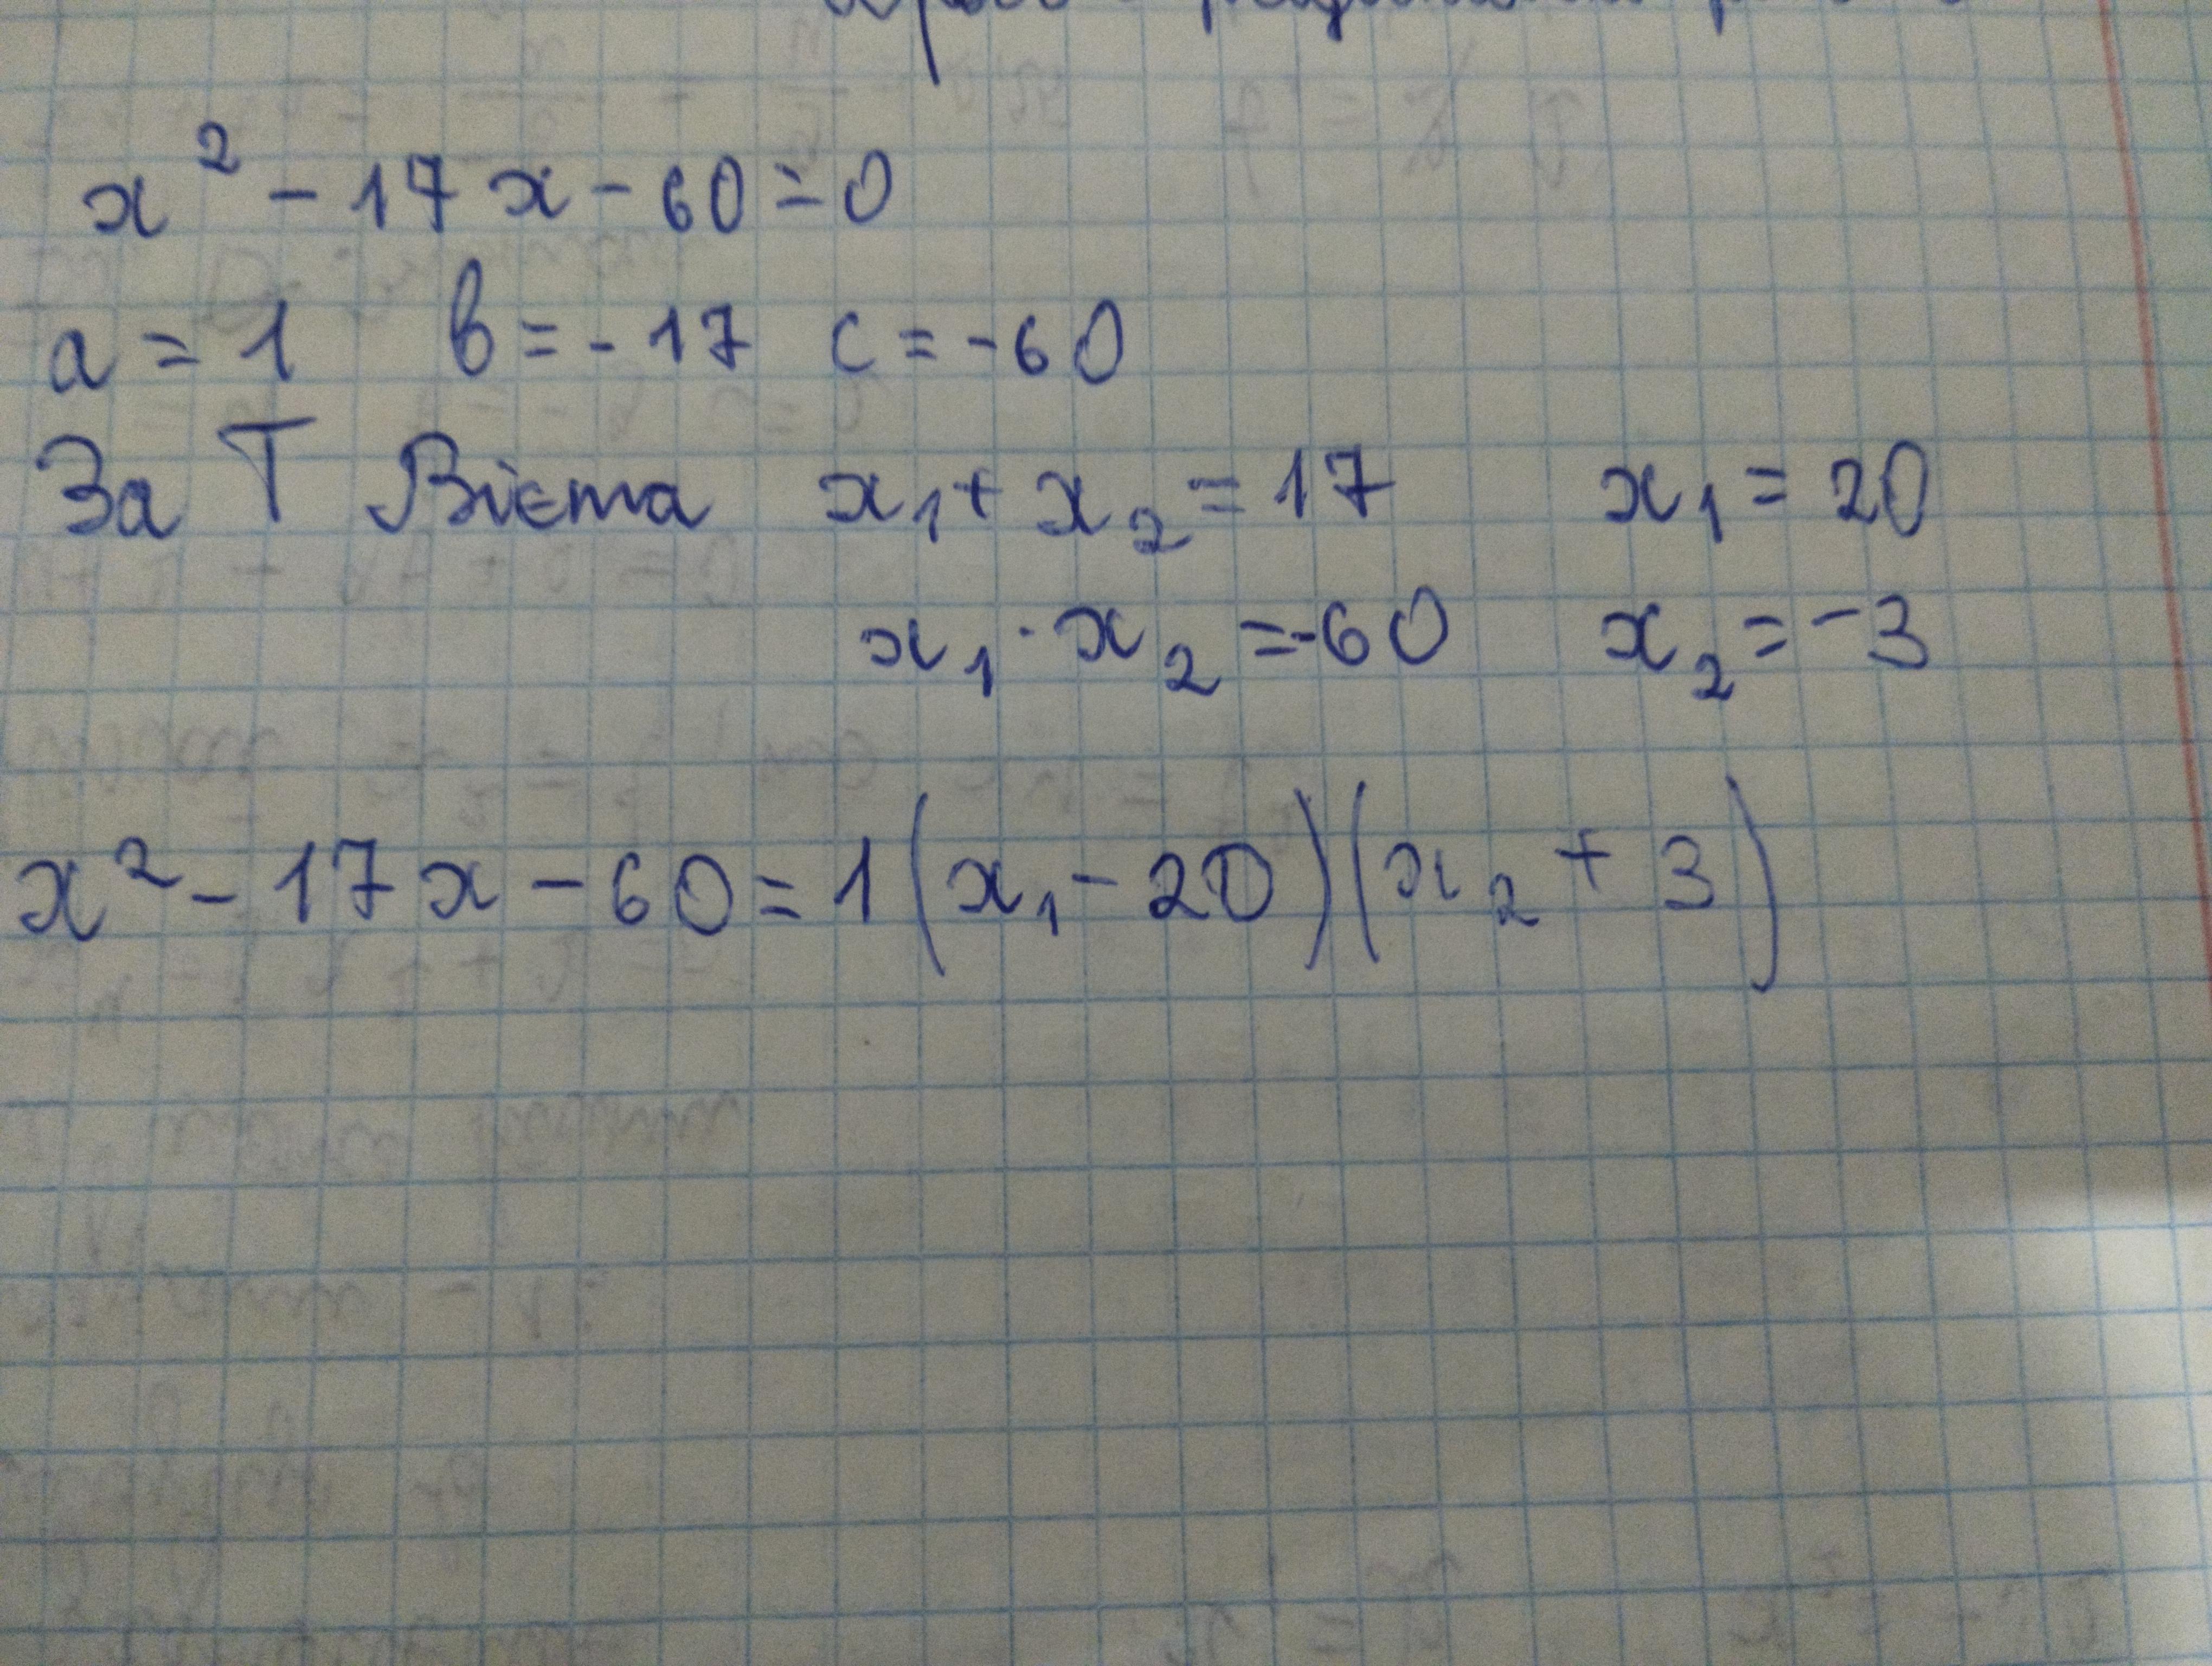 x² - 17x - 60 = 0
a = 1 b = -17 c = -60
За Т Вієта x₁ + x₂ = 17 x₁ = 20
x₁ · x₂ = -60 x₂ = -3
x² - 17x - 60 = 1(x₁ - 20)(x₂ + 3)